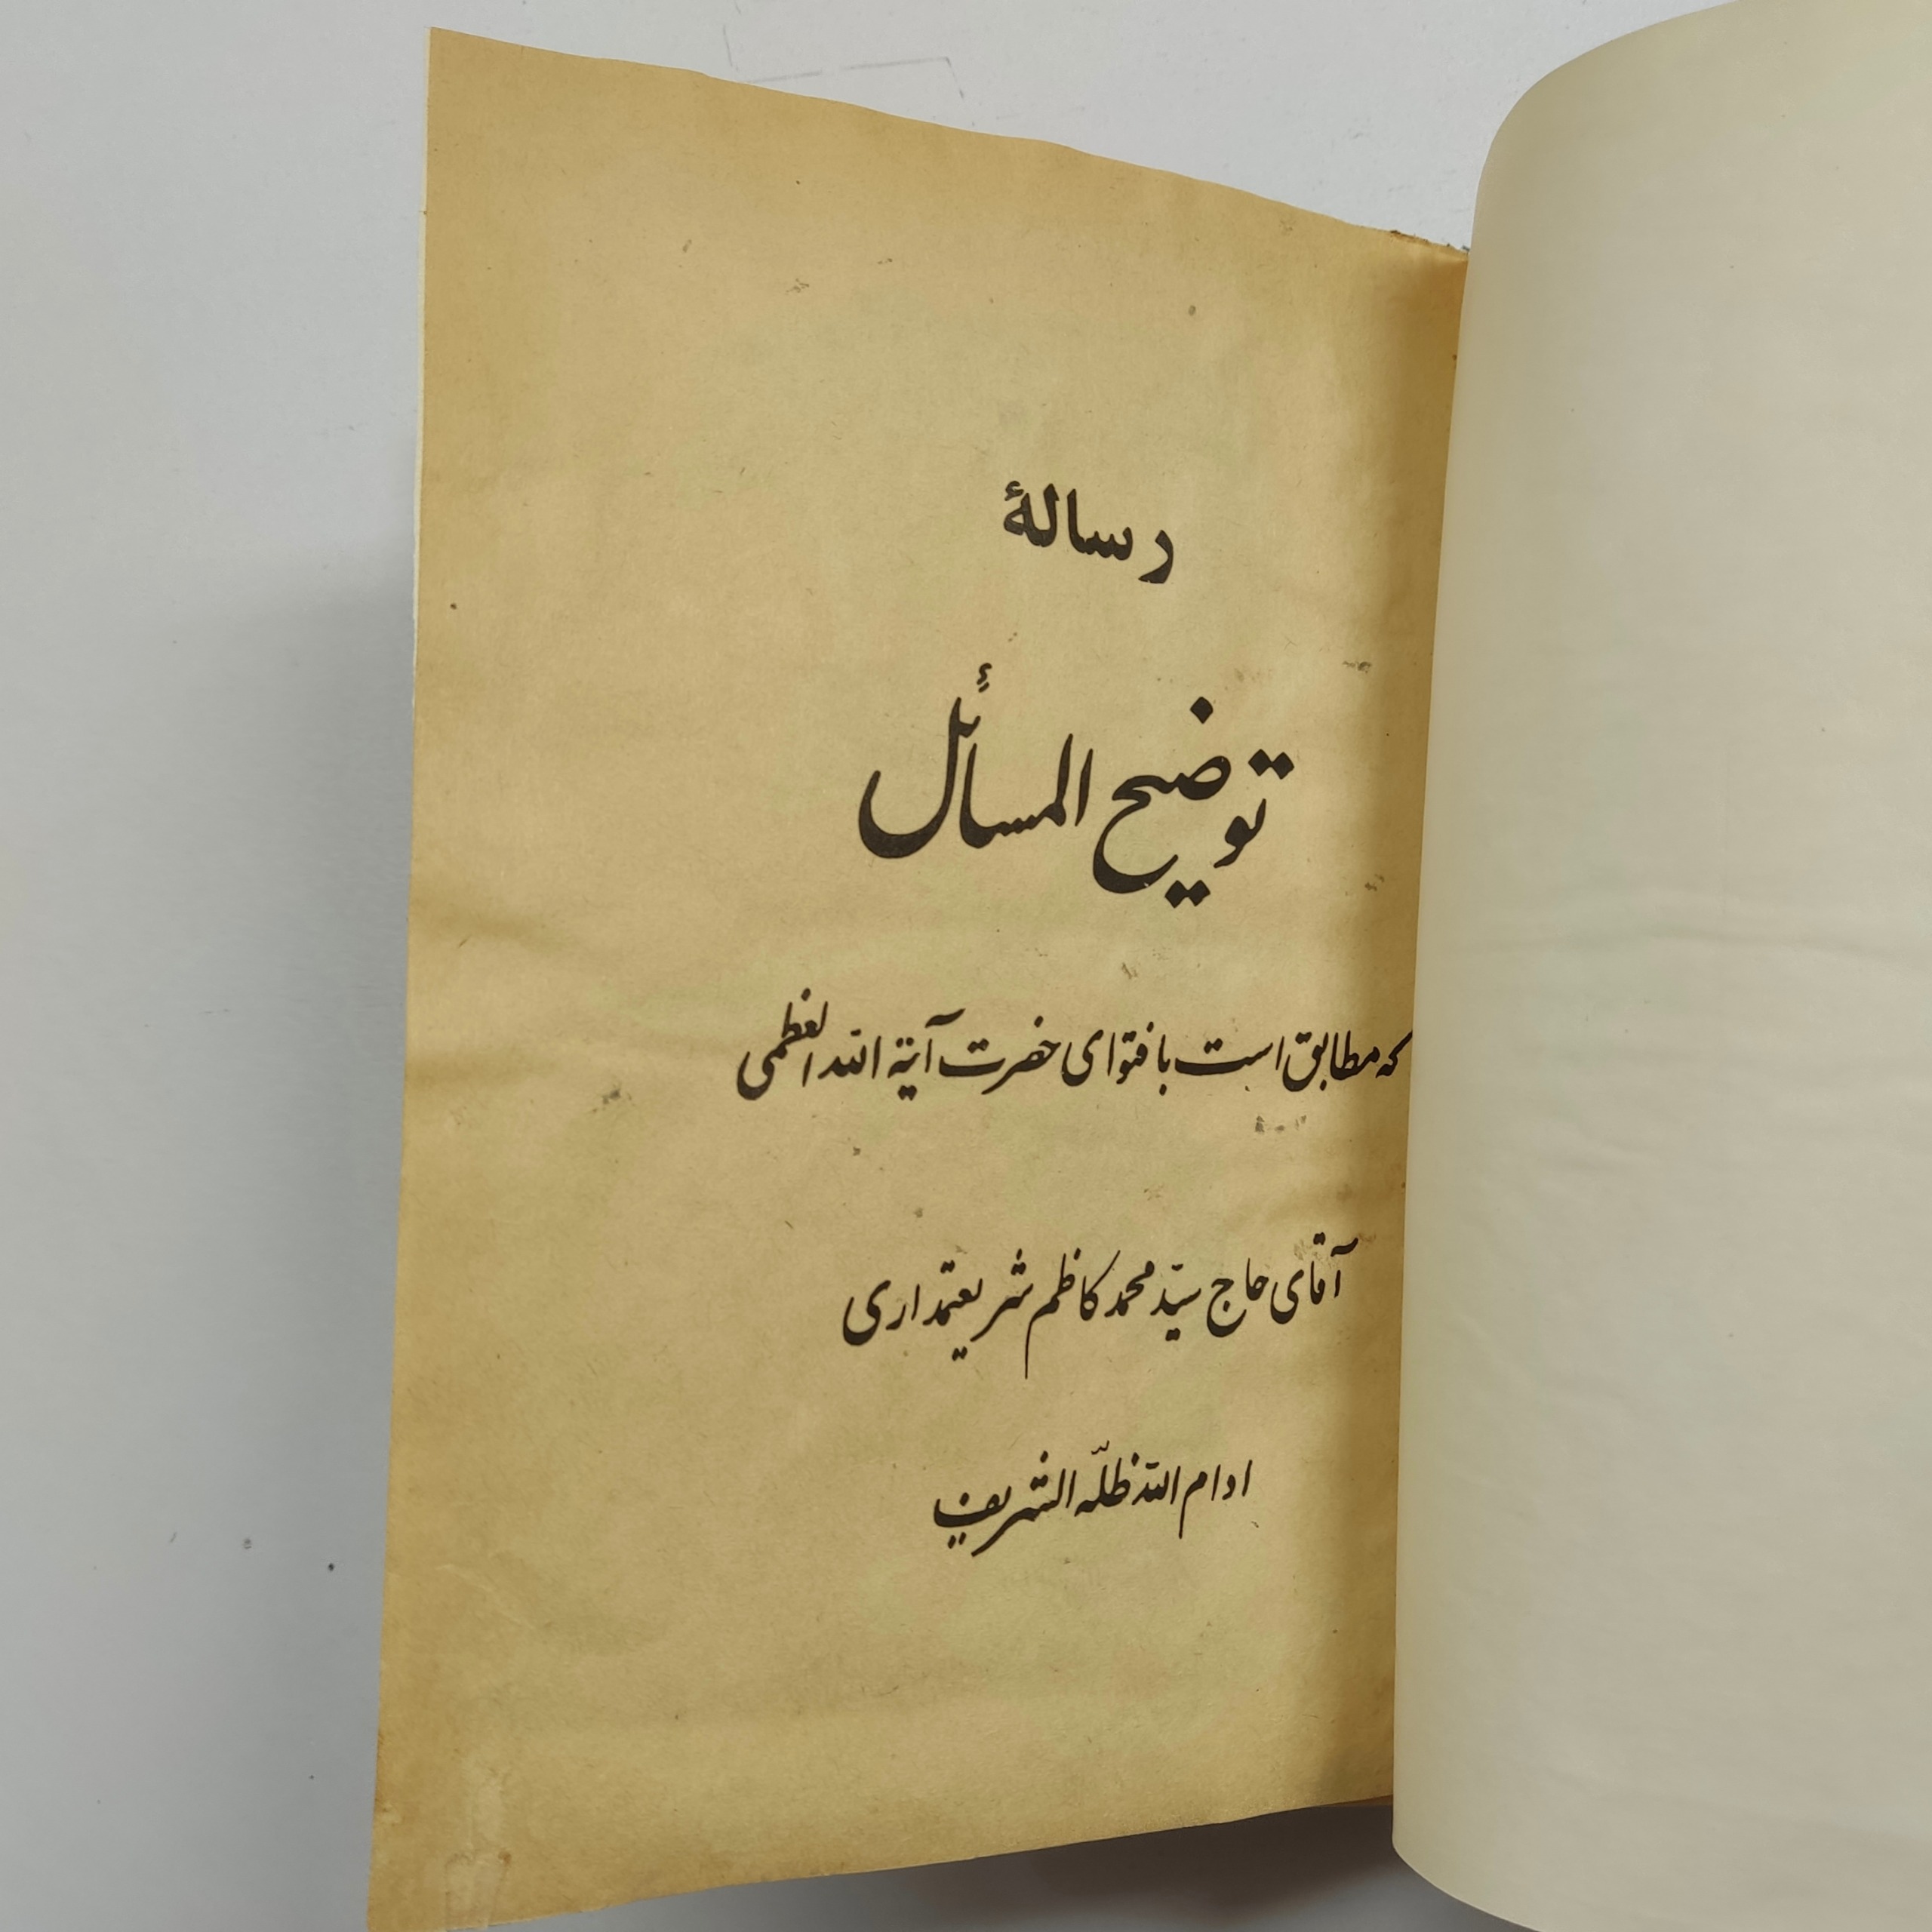 رسالهٔ
توضیح المسائل
که مطابق است با فتوای حضرت آیة الله العظمی
آقای حاج سیّد محمد کاظم شریعتمداری
ادام الله ظلّه الشریف